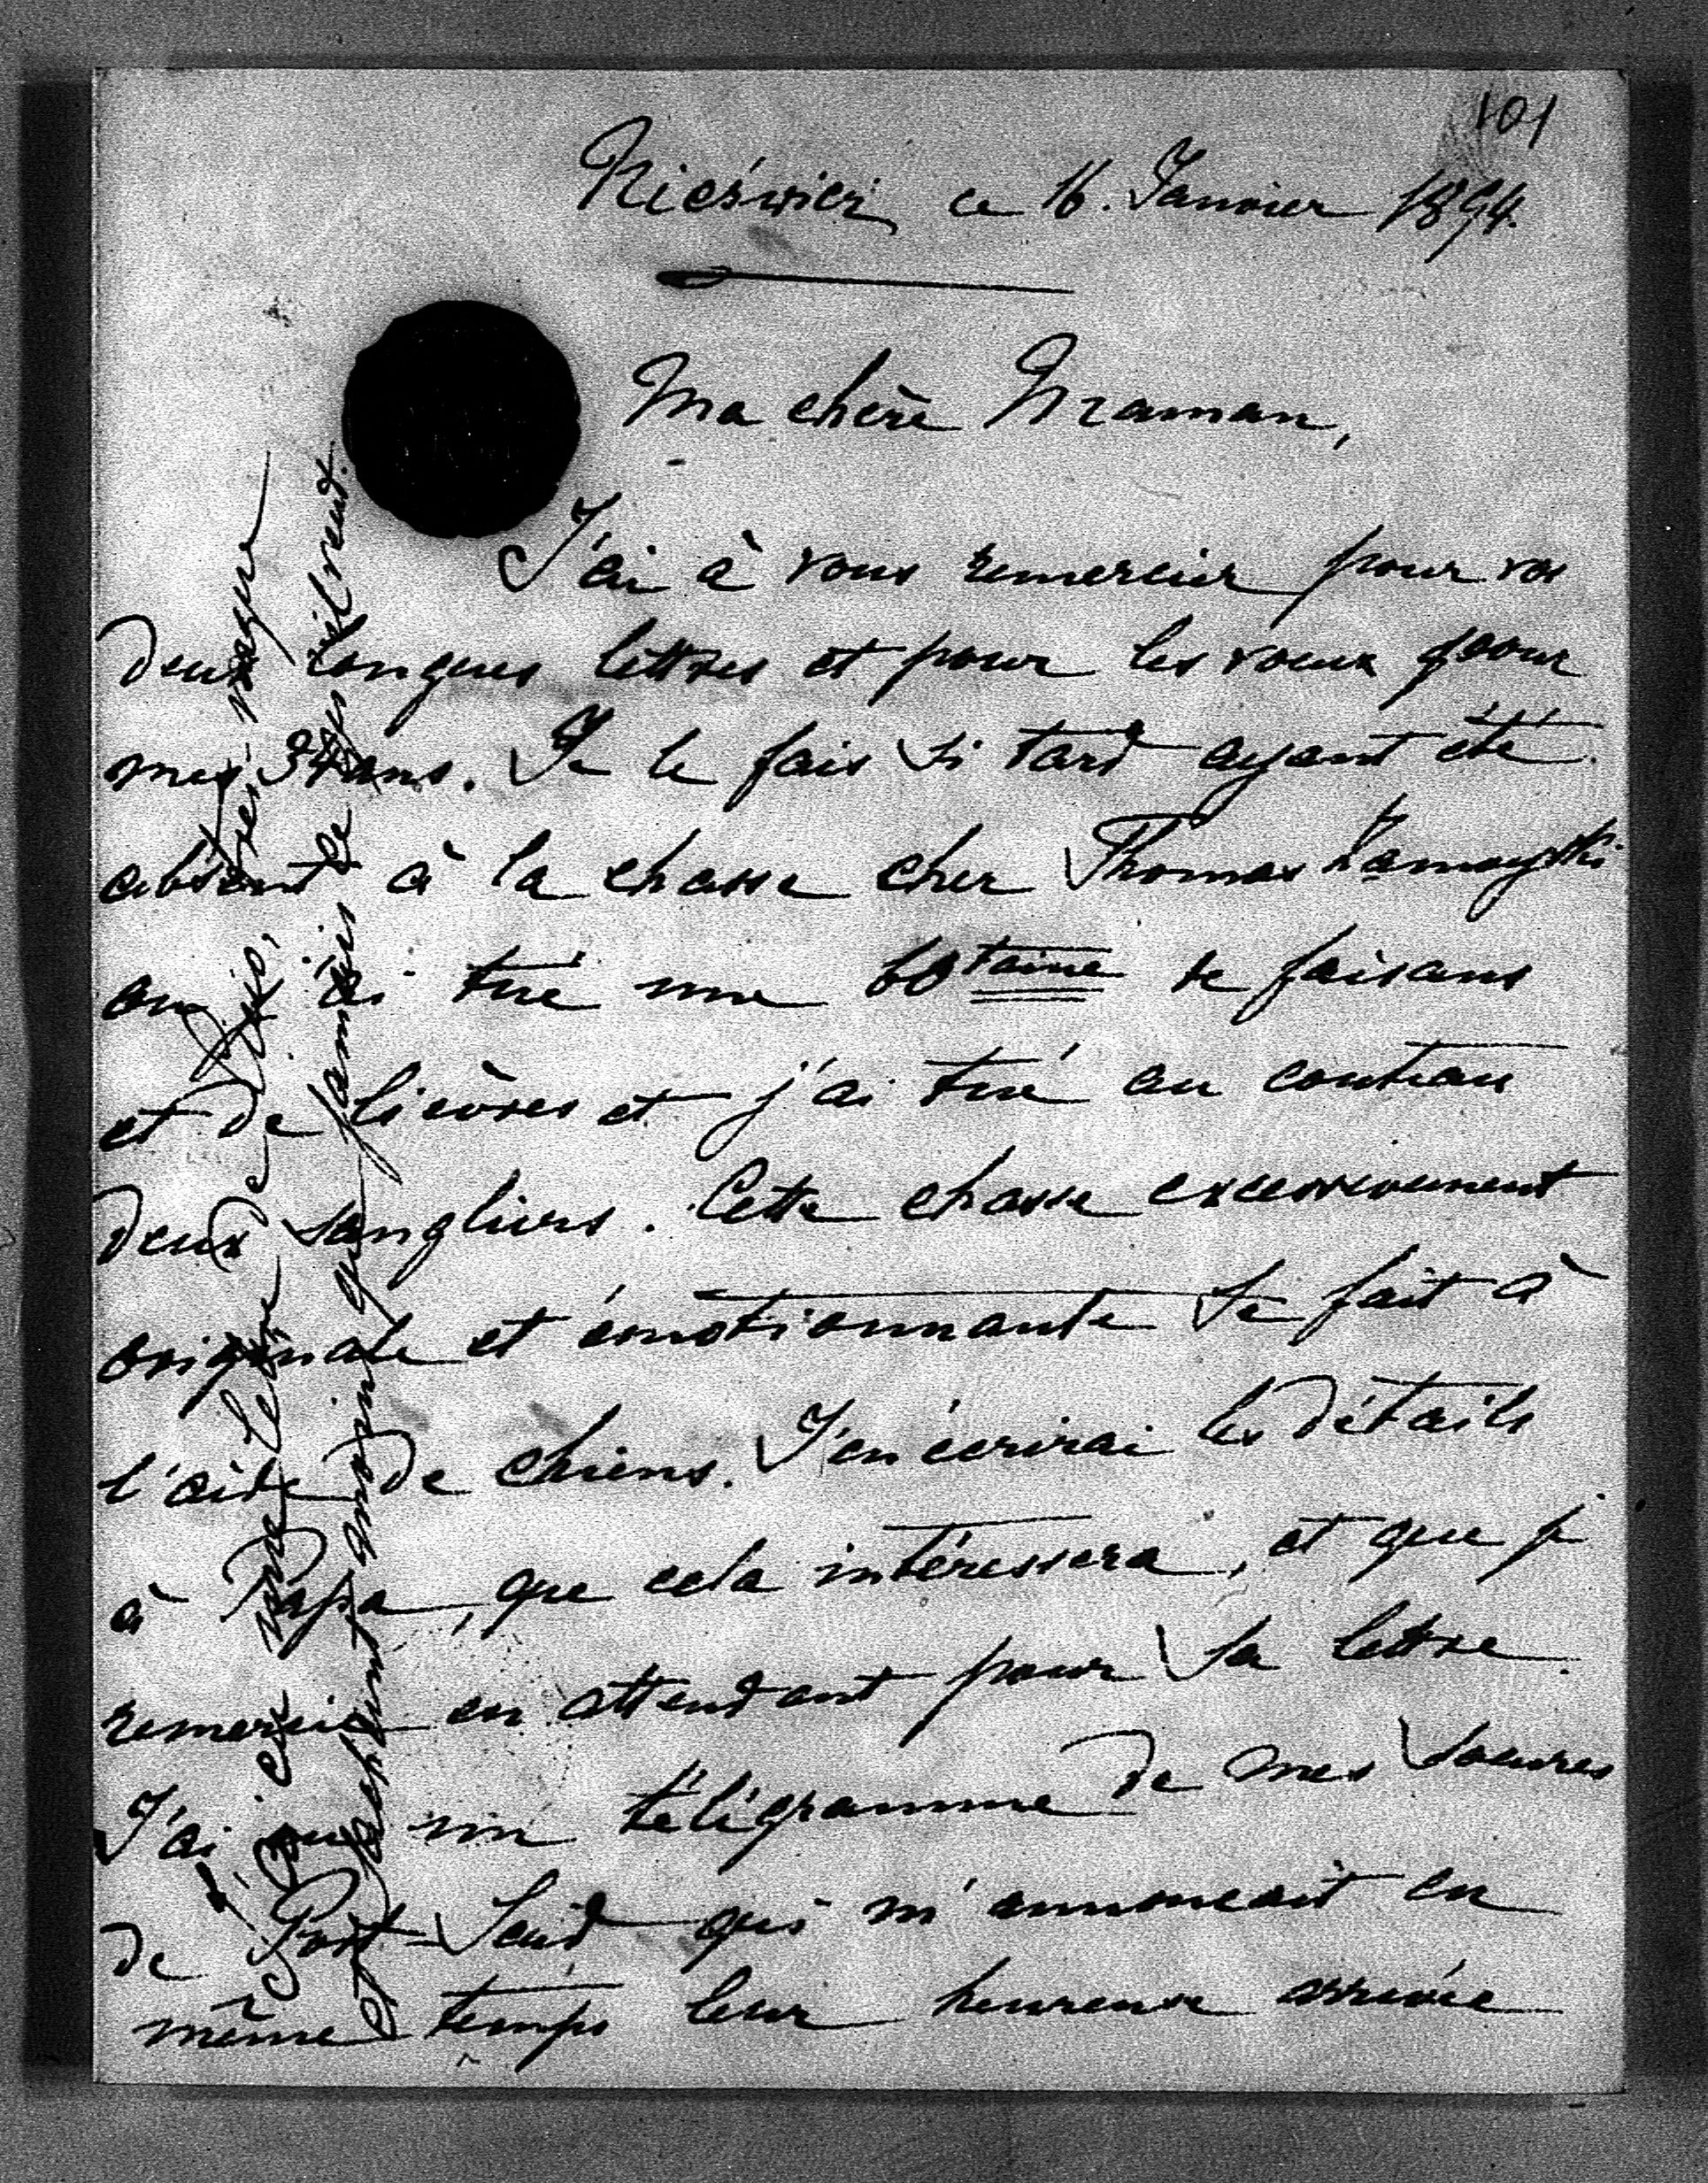 101
Nieświez ce 16. Janvier 1894.
Ma chère Maman,
J'ai à vous remercier pour vos
deux longues lettres et pour les voeux pour
mes 34 ans. Je le fais si tard ayant été
absent à la chasse chez Thomas Zamoyski
ou j'ai tué une 60taine de faisans
et de lièvres et j'ai tué au couteau
deux sangliers. Cette chasse excessivement
originale et émotionnante se fait à
l'aide de chiens. J'en écrirai les détails
à Papa, que cela intéressera, et que je
remercie en attendant pour sa lettre.
J'ai eu un télégramme de mes soeures
de Port-Said qui m'annoncait en
même temps leur heureuse arrivée